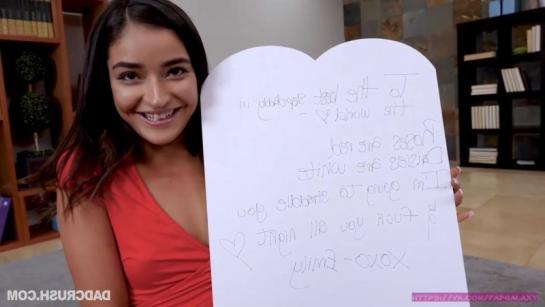 DADCRUSH.COM
To the best Stepdaddy in
the World ♡ ~
Roses are red
Daisies are white
I'm going to straddle you
& Fuck you all night
XOXO- Emily
DADCRUSH.COM
HTTPS://VK.COM/FAPGALAXY